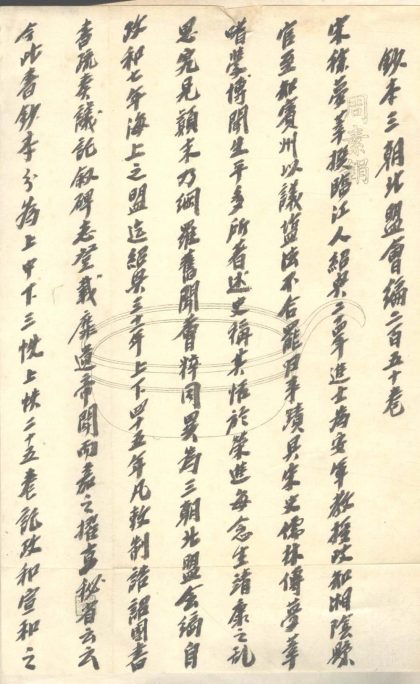 鈔本三朝北盟會編二百五十卷
宋徐夢莘撰臨江人紹興二四年進士為安軍教授改知湘陰縣
官至知賓州以議鹽法不合罷歸事蹟具宋史儒林傳夢莘
嗜學博聞生平多所著述史稱其恬於榮進每念生靖康之亂
思究見顛末乃網羅舊聞會粹同異為三朝北盟會編自
政和七年海上之盟迄紹興三十年上下四十五年凡敕制誥詔國書
書疏奏議記敘碑志登載靡遺帝聞而嘉之擢直秘省云云
今此書鈔本分為上中下三帙上帙二十五卷記政和宣和之